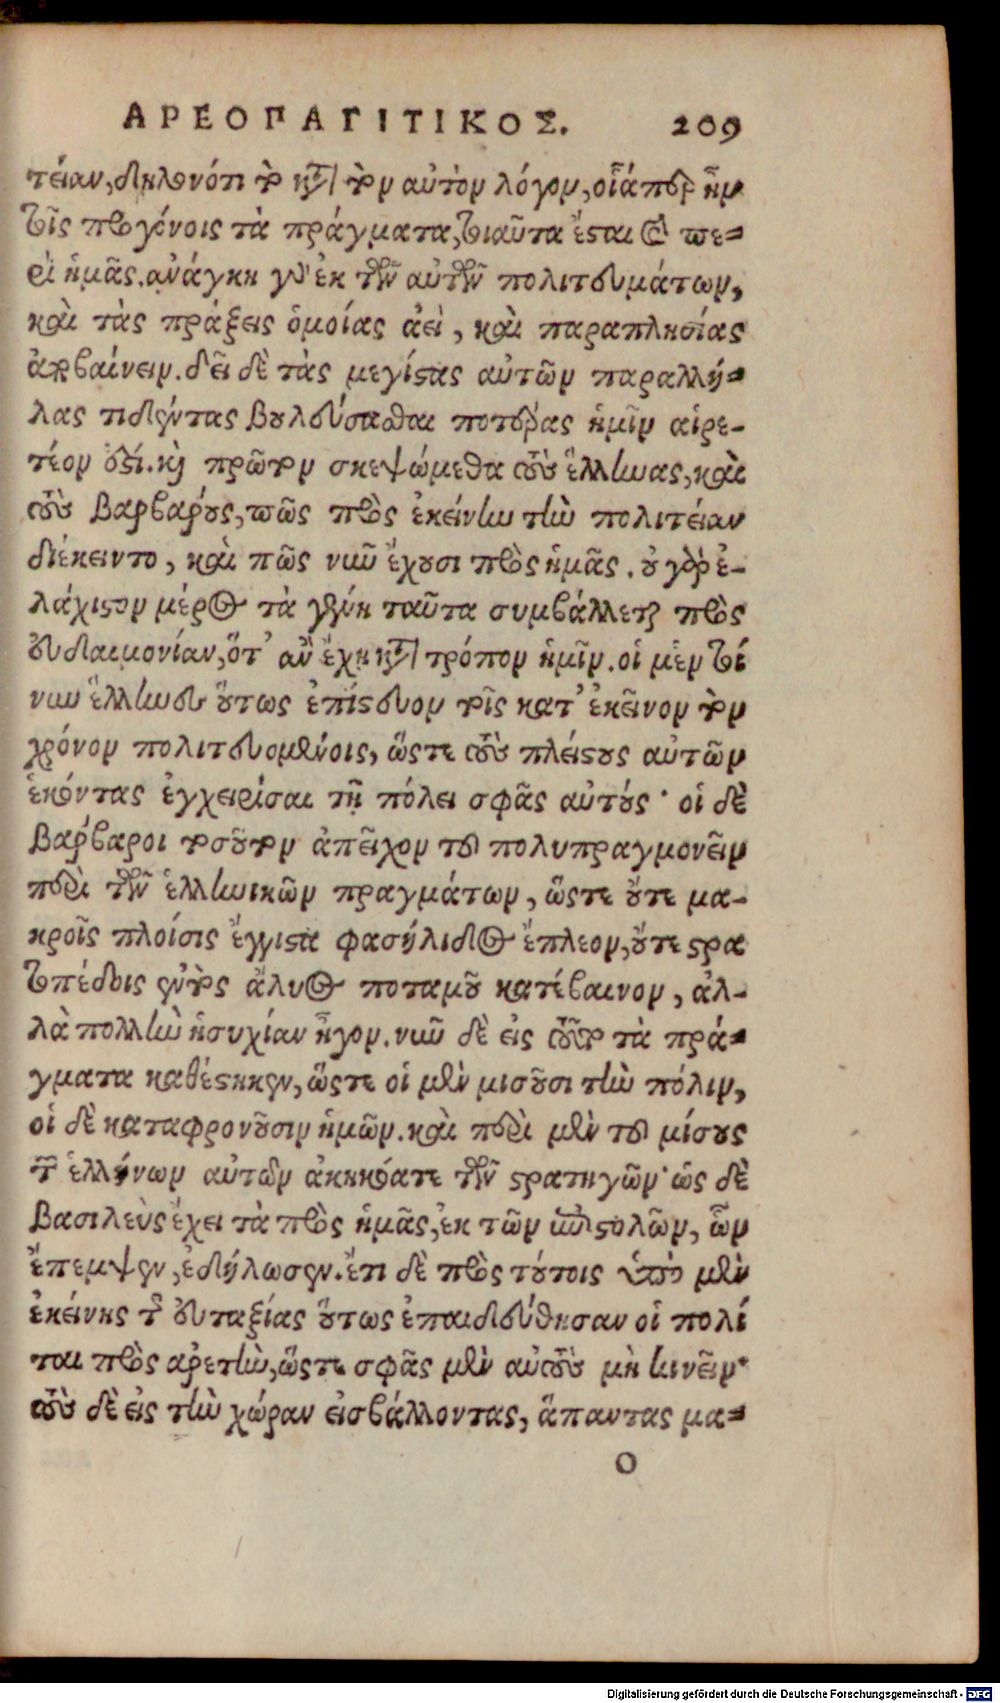 ΑΡΕΟΠΑΓΙΤΙΚΟΣ. 209
τείαν, δηλονότι τὸ κατὰ τὸν αὐτὸν λόγον, οἷάπερ ἦν
τοῖς προγόνοις τὰ πράγματα, τοιαῦτα ἔσται καὶ πε-
ρὶ ἡμᾶς. ἀνάγκη γὰρ ἐκ τῶν αὐτῶν πολιτευμάτων,
καὶ τὰς πράξεις ὁμοίας ἀεὶ, καὶ παραπλησίας
ἀποβαίνειν. δεῖ δὲ τὰς μεγίστας αὐτῶν παραλλή-
λας τιθέντας βουλεύσασθαι ποτέρας ἡμῖν αἱρε-
τέον ἐστί. καὶ πρῶτον σκεψώμεθα τοὺς ἕλληνας, καὶ
τοὺς βαρβάρους, πῶς πρὸς ἐκείνην τὴν πολιτείαν
διέκειντο, καὶ πῶς νῦν ἔχουσι πρὸς ἡμᾶς. οὐ γὰρ ἐ-
λάχιστον μέρος τὰ γένη ταῦτα συμβάλλεται πρὸς
εὐδαιμονίαν, ὅτ' ἂν ἔχη κατὰ τρόπον ἡμῖν. οἱ μὲν τοί
νυν ἕλληνες οὕτως ἐπίστευον τοῖς κατ' ἐκεῖνον τὸν
χρόνον πολιτευομένοις, ὥστε τοὺς πλείστους αὐτῶν
ἑκόντας ἐγχειρίσαι τῇ πόλει σφᾶς αὐτούς· οἱ δὲ
βάρβαροι τοσοῦτον ἀπεῖχον τοῦ πολυπραγμονεῖν
περὶ τῶν ἑλληνικῶν πραγμάτων, ὥστε οὔτε μα-
κροῖς πλοίοις ἔγγιστα φασήλιδος ἔπλεον, οὔτε στρα
τοπέδοις ἐντὸς ἅλυος ποταμοῦ κατέβαινον, ἀλ-
λὰ πολλὴν ἡσυχίαν ἦγον. νῦν δὲ εἰς τοῦτο τὰ πρά-
γματα καθέστηκεν, ὥστε οἱ μὲν μισοῦσι τὴν πόλιν,
οἱ δὲ καταφρονοῦσιν ἡμῶν. καὶ περὶ μὲν τοῦ μίσους
τῶν ἑλλήνων αὐτῶν ἀκηκόατε τῶν στρατηγῶν· ὡς δὲ
βασιλεὺς ἔχει τὰ πρὸς ἡμᾶς, ἐκ τῶν ἐπιστολῶν, ὧν
ἔπεμψεν, ἐδήλωσεν. ἔτι δὲ πρὸς τούτοις ὑπὸ μὲν
ἐκείνης τῆς εὐταξίας οὕτως ἐπαιδεύθησαν οἱ πολί
ται πρὸς ἀρετὴν, ὥστε σφᾶς μὲν αὐτοὺς μὴ κινεῖν·
τοὺς δὲ εἰς τὴν χώραν εἰσβάλλοντας, ἅπαντας μα-
O
Digitalisierung gefördert durch die Deutsche Forschungsgemeinschaft - DFG